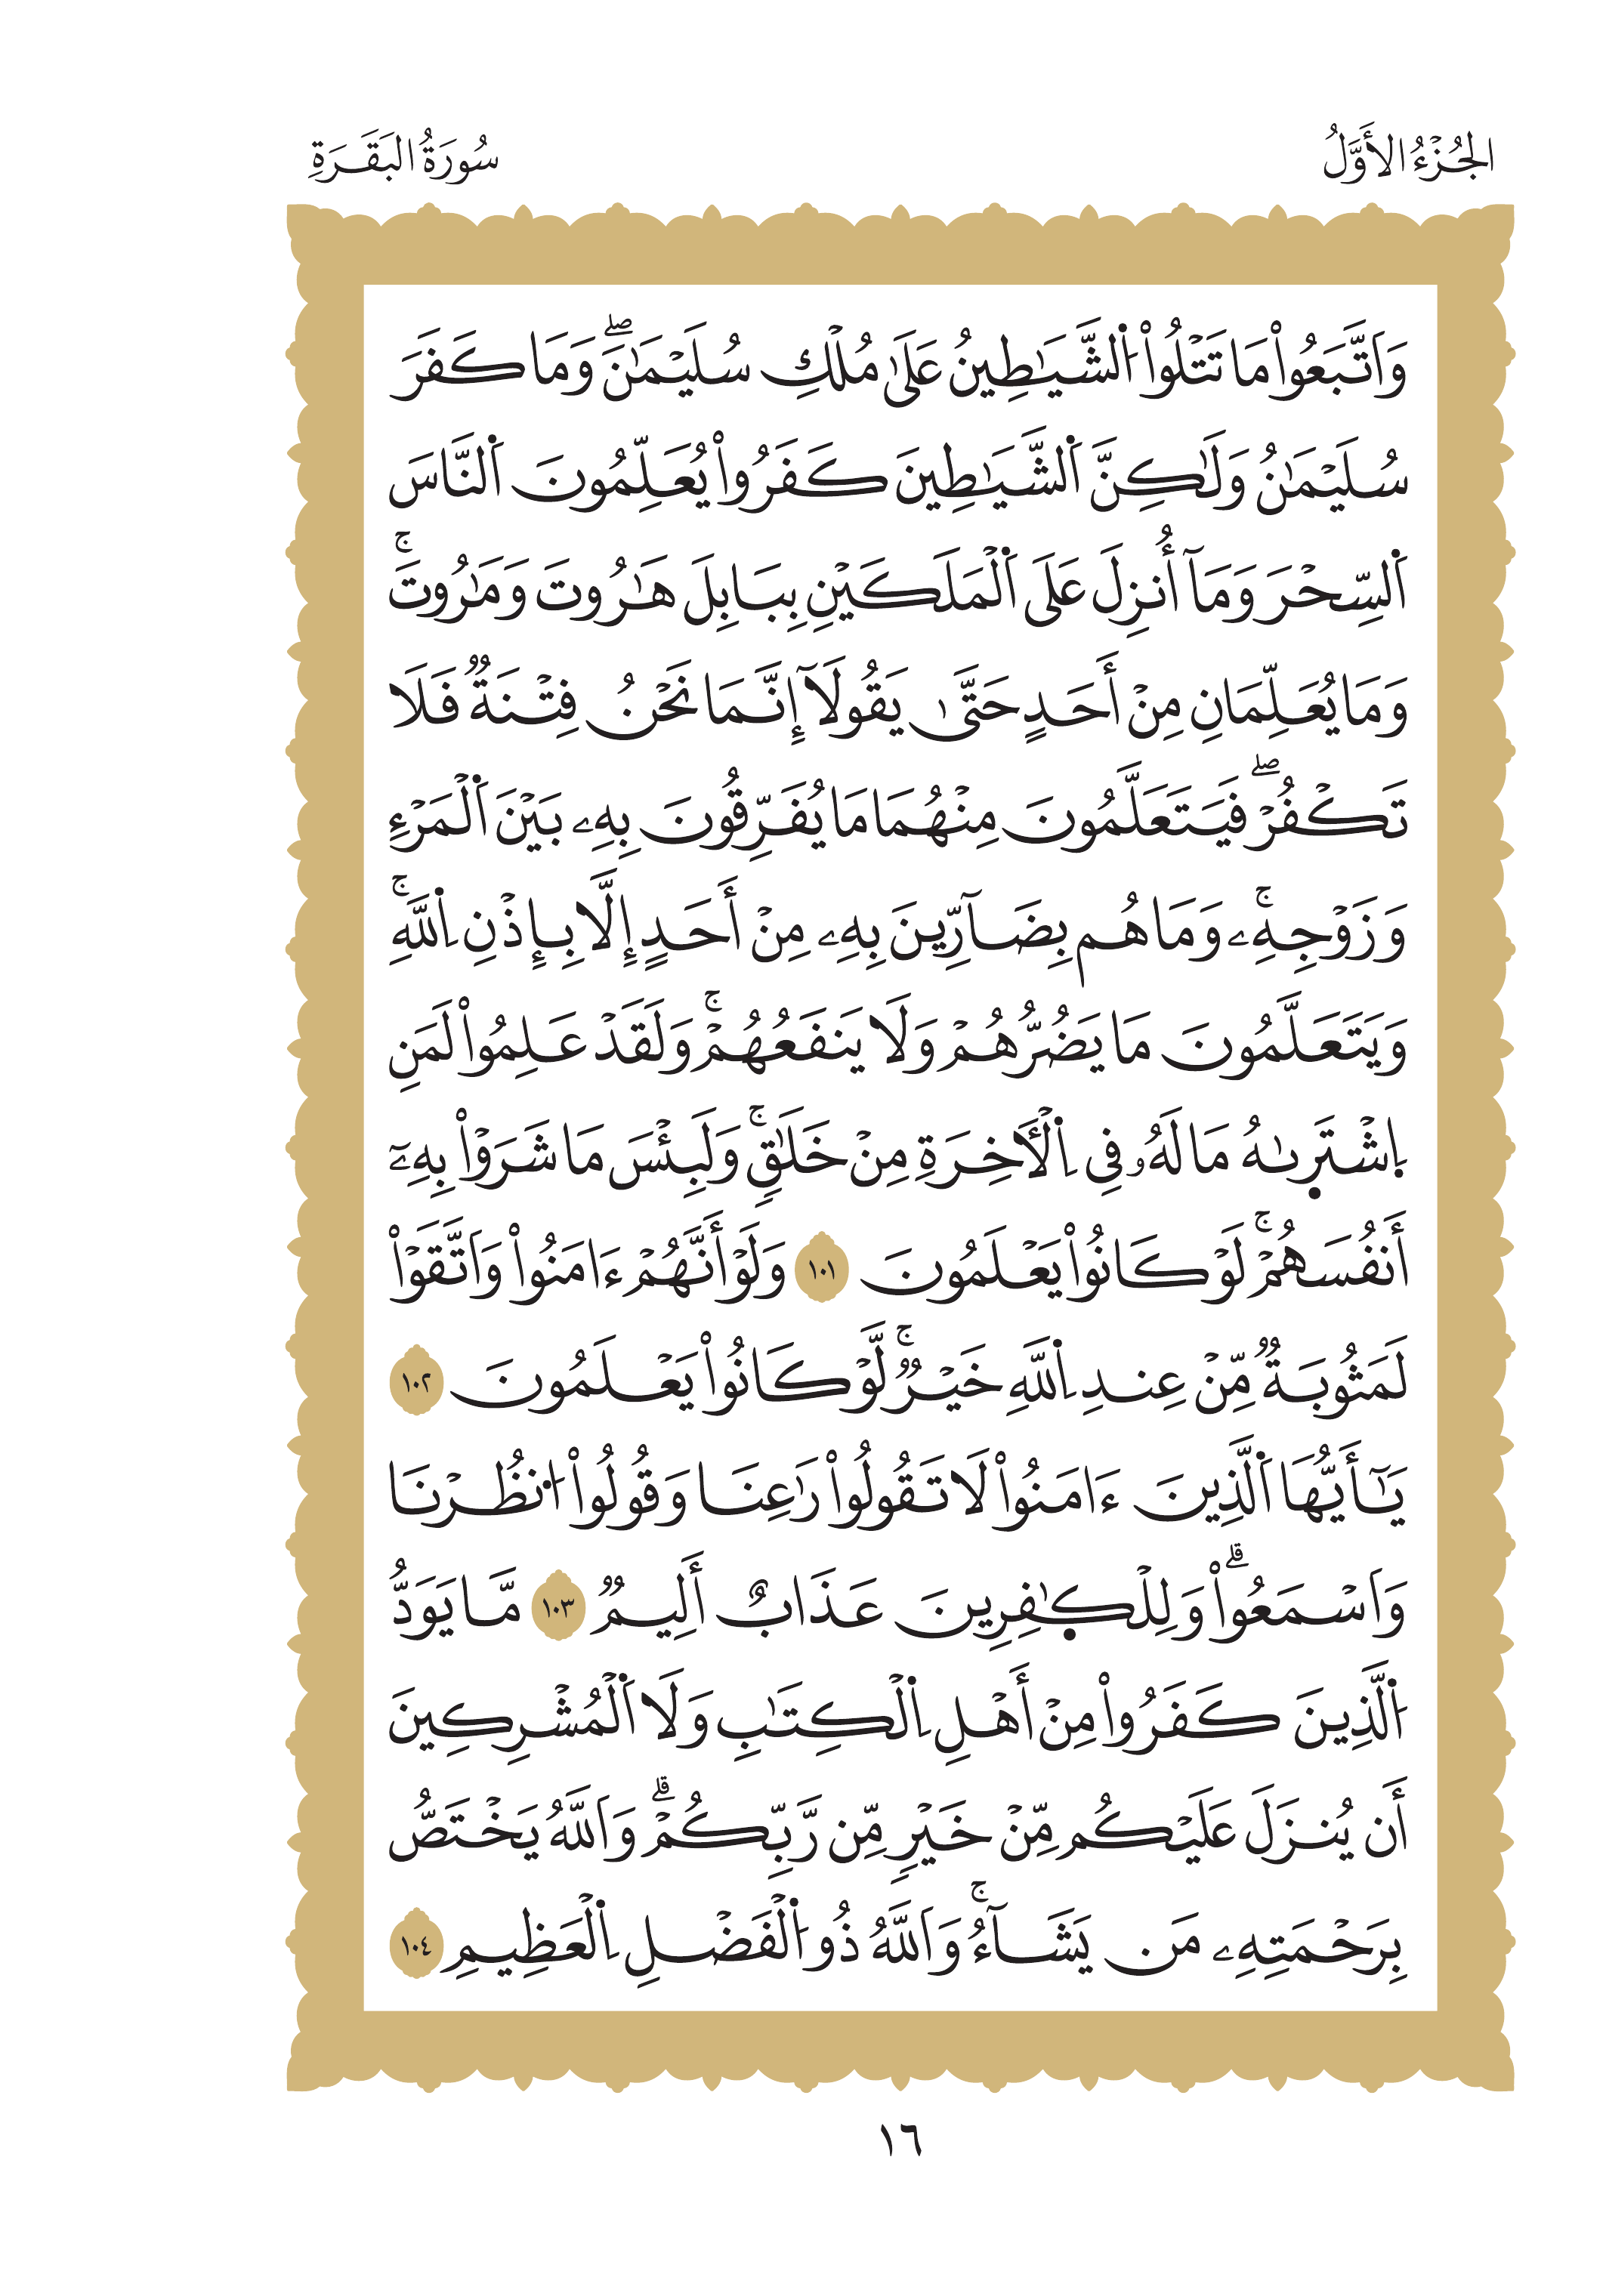 الجُزْءُ الأَوَّلُ
سُورَةُ البَقَرَةِ
وَاَتَّبَعُواْ مَا تَتْلُواْ اُ۬لشَّيَٰطِينُ عَلَىٰ مُلْكِ سُلَيْمَٰنَۖ وَمَا كَفَرَ
سُلَيْمَٰنُ وَلَٰكِنَّ اَ۬لشَّيَٰطِينَ كَفَرُواْ يُعَلِّمُونَ اَ۬لنَّاسَ
اَ۬لسِّحْرَ وَمَآ أُنزِلَ عَلَى اَ۬لْمَلَكَيْنِ بِبَابِلَ هَٰرُوتَ وَمَٰرُوتَۚ
وَمَا يُعَلِّمَانِ مِنْ أَحَدٍ حَتَّىٰ يَقُولَآ إِنَّمَا نَحْنُ فِتْنَةٞ فَلَا
تَكْفُرْۖ فَيَتَعَلَّمُونَ مِنْهُمَا مَا يُفَرِّقُونَ بِهِۦ بَيْنَ اَ۬لْمَرْءِ
وَزَوْجِهِۦۚ وَمَا هُم بِضَآرِّينَ بِهِۦ مِنْ أَحَدٍ إِلَّا بِإِذْنِ اِ۬للَّهِۚ
وَيَتَعَلَّمُونَ مَا يَضُرُّهُمْ وَلَا يَنفَعُهُمْۚ وَلَقَدْ عَلِمُواْ لَمَنِ
اِ۪شْتَر۪ىٰهُ مَا لَهُۥ فِي اِ۬لْأٓخِرَةِ مِنْ خَلَٰقٖۚ وَلَبِئْسَ مَا شَرَوْاْ بِهِۦٓ
أَنفُسَهُمْۚ لَوْ كَانُواْ يَعْلَمُونَ ١٠١ وَلَوْ أَنَّهُمْ ءَامَنُواْ وَاَتَّقَوْاْ
لَمَثُوبَةٞ مِّنْ عِندِ اِ۬للَّهِ خَيْرٞۚ لَّوْ كَانُواْ يَعْلَمُونَ ١٠٢
يَٰٓأَيُّهَا اَ۬لَّذِينَ ءَامَنُواْ لَا تَقُولُواْ رَٰعِنَا وَقُولُواْ اُ۟نظُرْنَا
وَاَسْمَعُواْۗ وَلِلْكٰ۪فِرِينَ عَذَابٌ أَلِيمٞ ١٠٣ مَّا يَوَدُّ
اَ۬لَّذِينَ كَفَرُواْ مِنْ أَهْلِ اِ۬لْكِتَٰبِ وَلَا اَ۬لْمُشْرِكِينَ
أَن يُنزَلَ عَلَيْكُم مِّنْ خَيْرٖ مِّن رَّبِّكُمْۗ وَاَللَّهُ يَخْتَصُّ
بِرَحْمَتِهِۦ مَن يَشَآءُۚ وَاَللَّهُ ذُو اُ۬لْفَضْلِ اِ۬لْعَظِيمِ ١٠٤
١٦